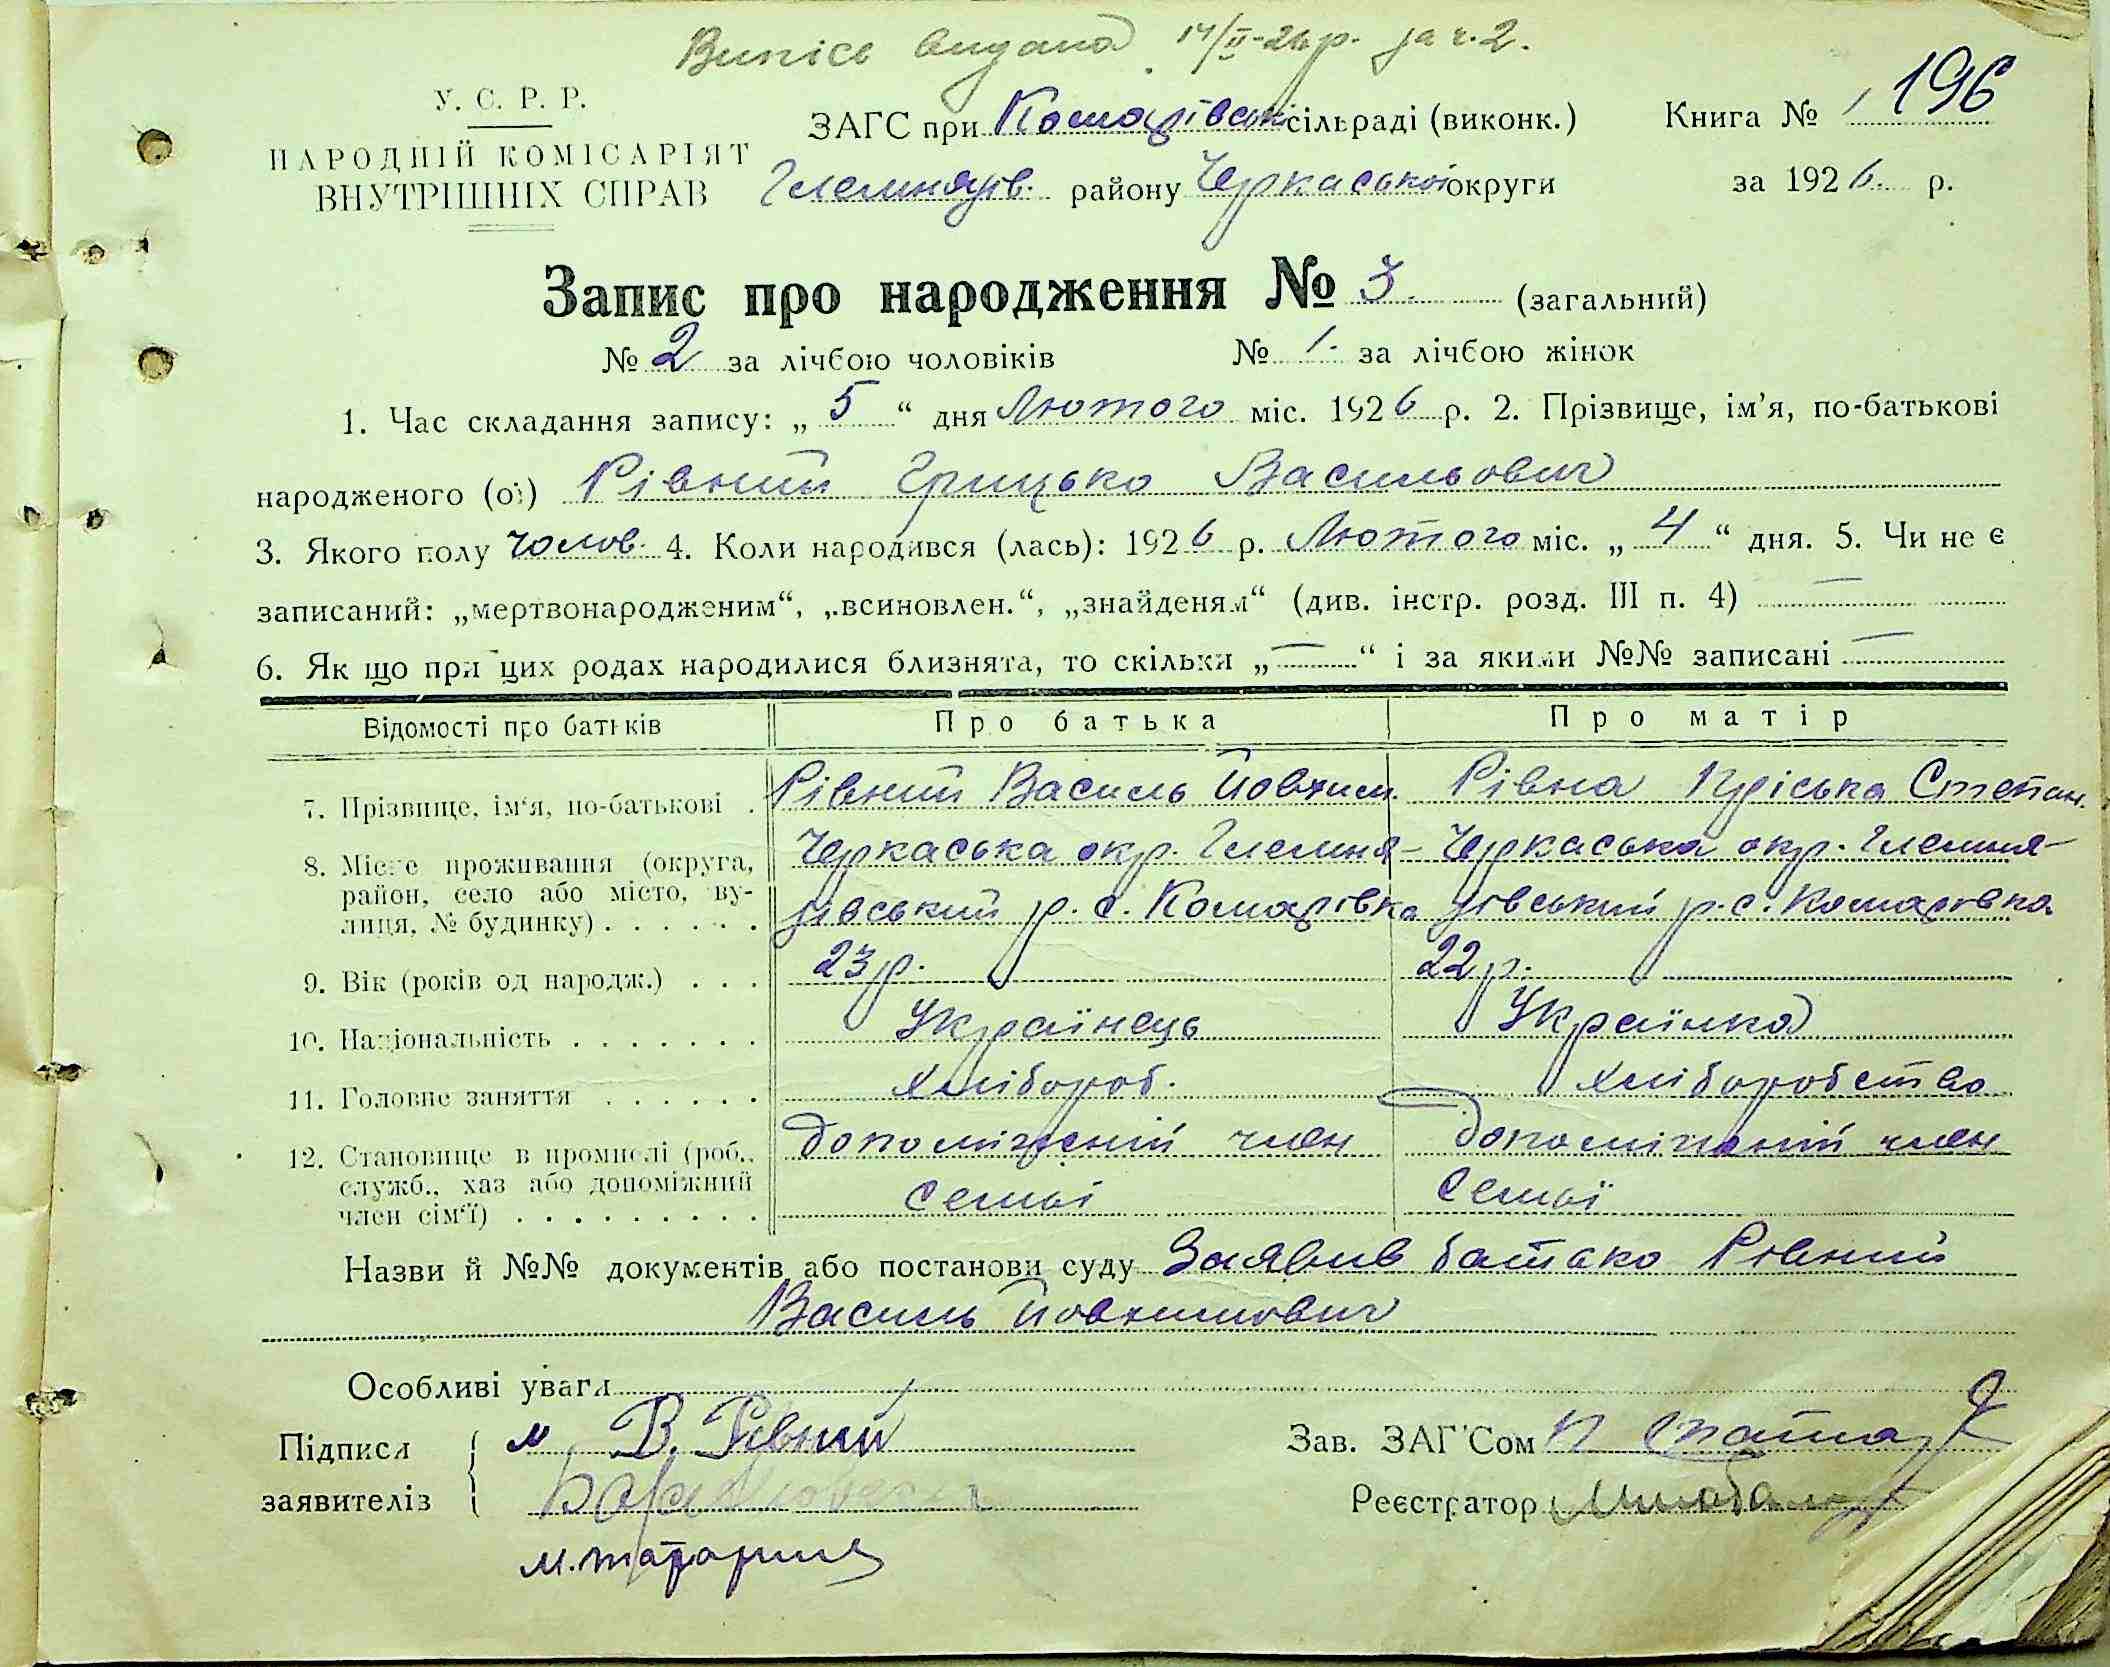 Виписє видана 14/II-26 р. за ч. 2.
У. С. Р. Р.
НАРОДНІЙ КОМІСАРІЯТ
ВНУТРІШНІХ СПРАВ
ЗАГС при Комарівськ сільраді (виконк.)
району Черкаської округи
Книга № 196
за 1926 р.
Запис про народження № 3 (загальний)
№ 2 за лічбою чоловіків № 1. за лічбою жінок
1. Час складання запису: „ 5 “ дня Лютого міс. 1926 р. 2. Прізвище, ім’я, по-батькові
народженого (ої) Рівний Грицько Васильович
3. Якого полу чолов. 4. Коли народився (лась): 1926 р. Лютого міс. „ 4 “ дня. 5. Чи не є
записаний: „мертвонародженим“, „всиновлен.“, „знайденям“ (див. інстр. розд. III п. 4) —
6. Як що при цих родах народилися близнята, то скільки „ — “ і за якими №№ записані —
Відомості про батьків Про батька Про матір
7. Прізвище, ім‘я, по-батькові . Рівний Василь Йовхим. Рівна Пріська Степан.
8. Місце проживання (округа, Черкаська окр. Глемня- Черкаська окр. Глемня-
район, село або місто, ву- зівський р. с. Комарівка зівський р. с. Комарівка
лиця, № будинку) . . . . . .
9. Вік (років од народж.) . . . 23 р. 22 р.
10. Національність . . . . . . . Українець Українка
11. Головне заняття . . . . . . Хлібороб. Хліборобство
12. Становище в промислі (роб., допоміжній член допоміжній член
служб., хаз або допоміжний семьі семьї
член сім‘ї) . . . . . . . . .
Назви й №№ документів або постанови суду Заявив батько Рівний
Василь Йовхимович
Особливі уваги
Підписи В. Рівний
заявителів
Зав. ЗАГ‘Сом
Реєстратор